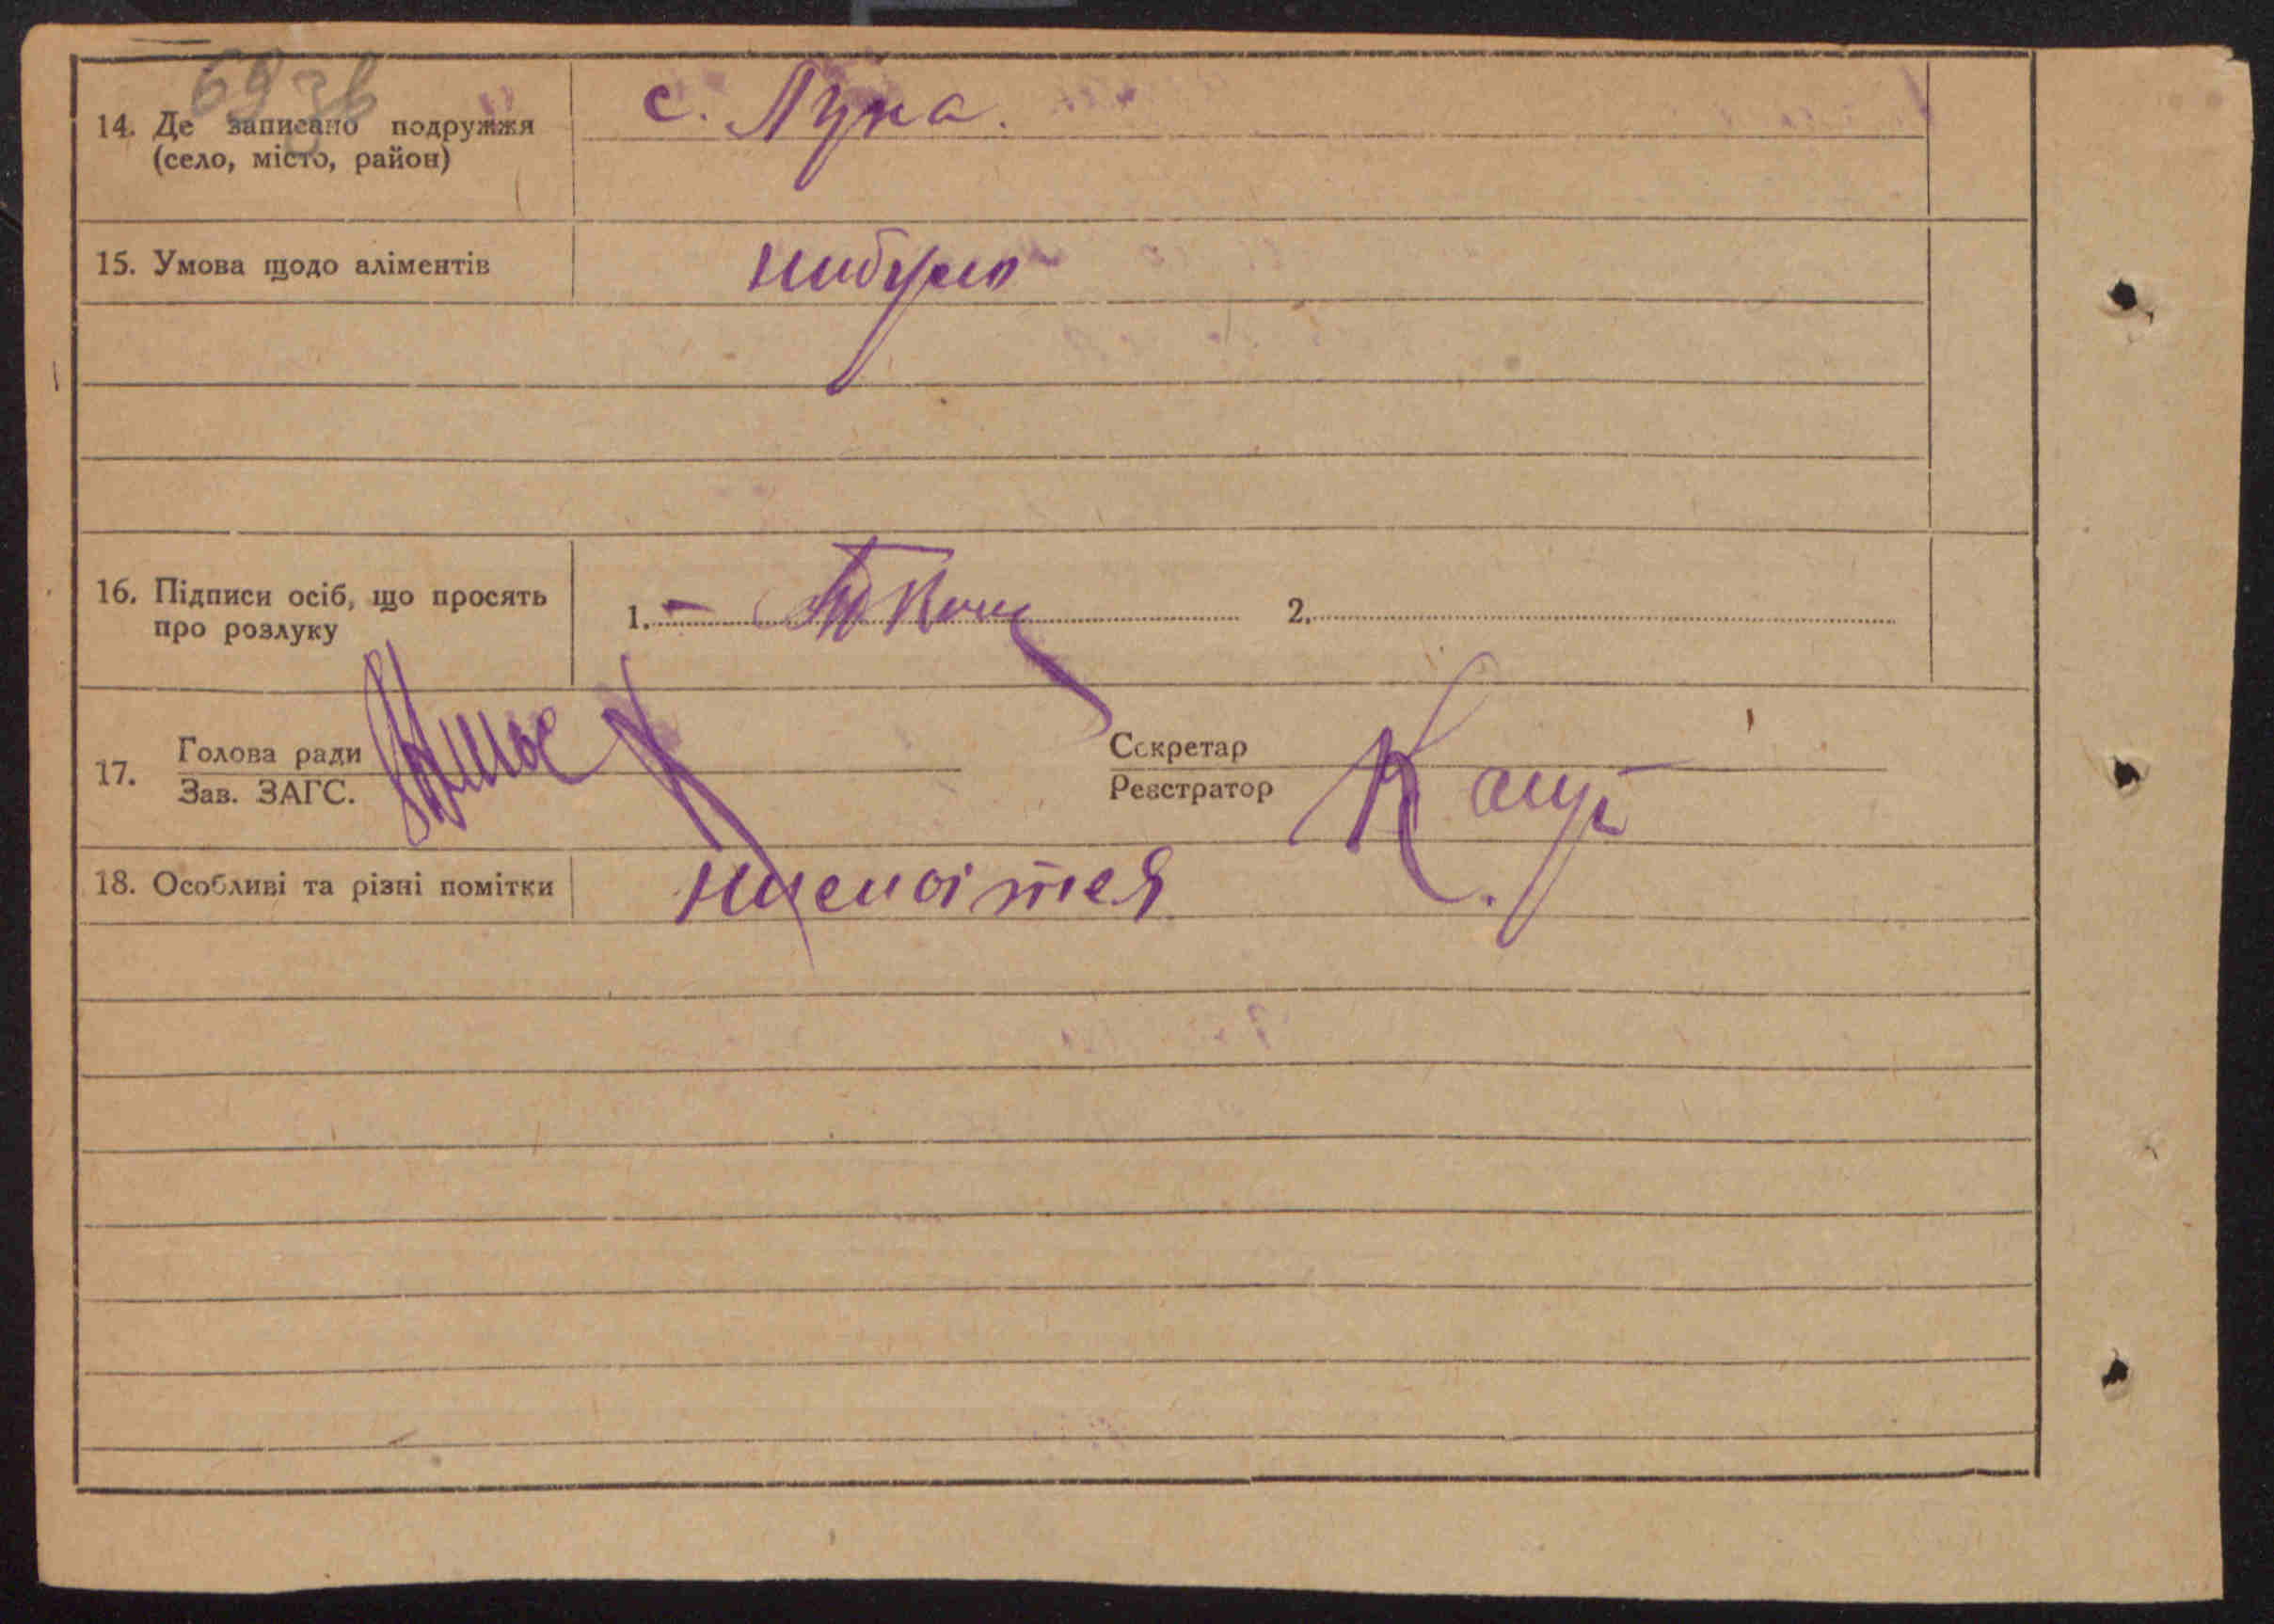 69 зв
14. Де записано подружжя с. Лука.
(село, місто, район)
15. Умова щодо аліментів нибуло
16. Підписи осіб, що просять 1. 2.
про розлуку
17. Голова ради Секретар
Зав. ЗАГС. Реєстратор
18. Особливі та різні помітки